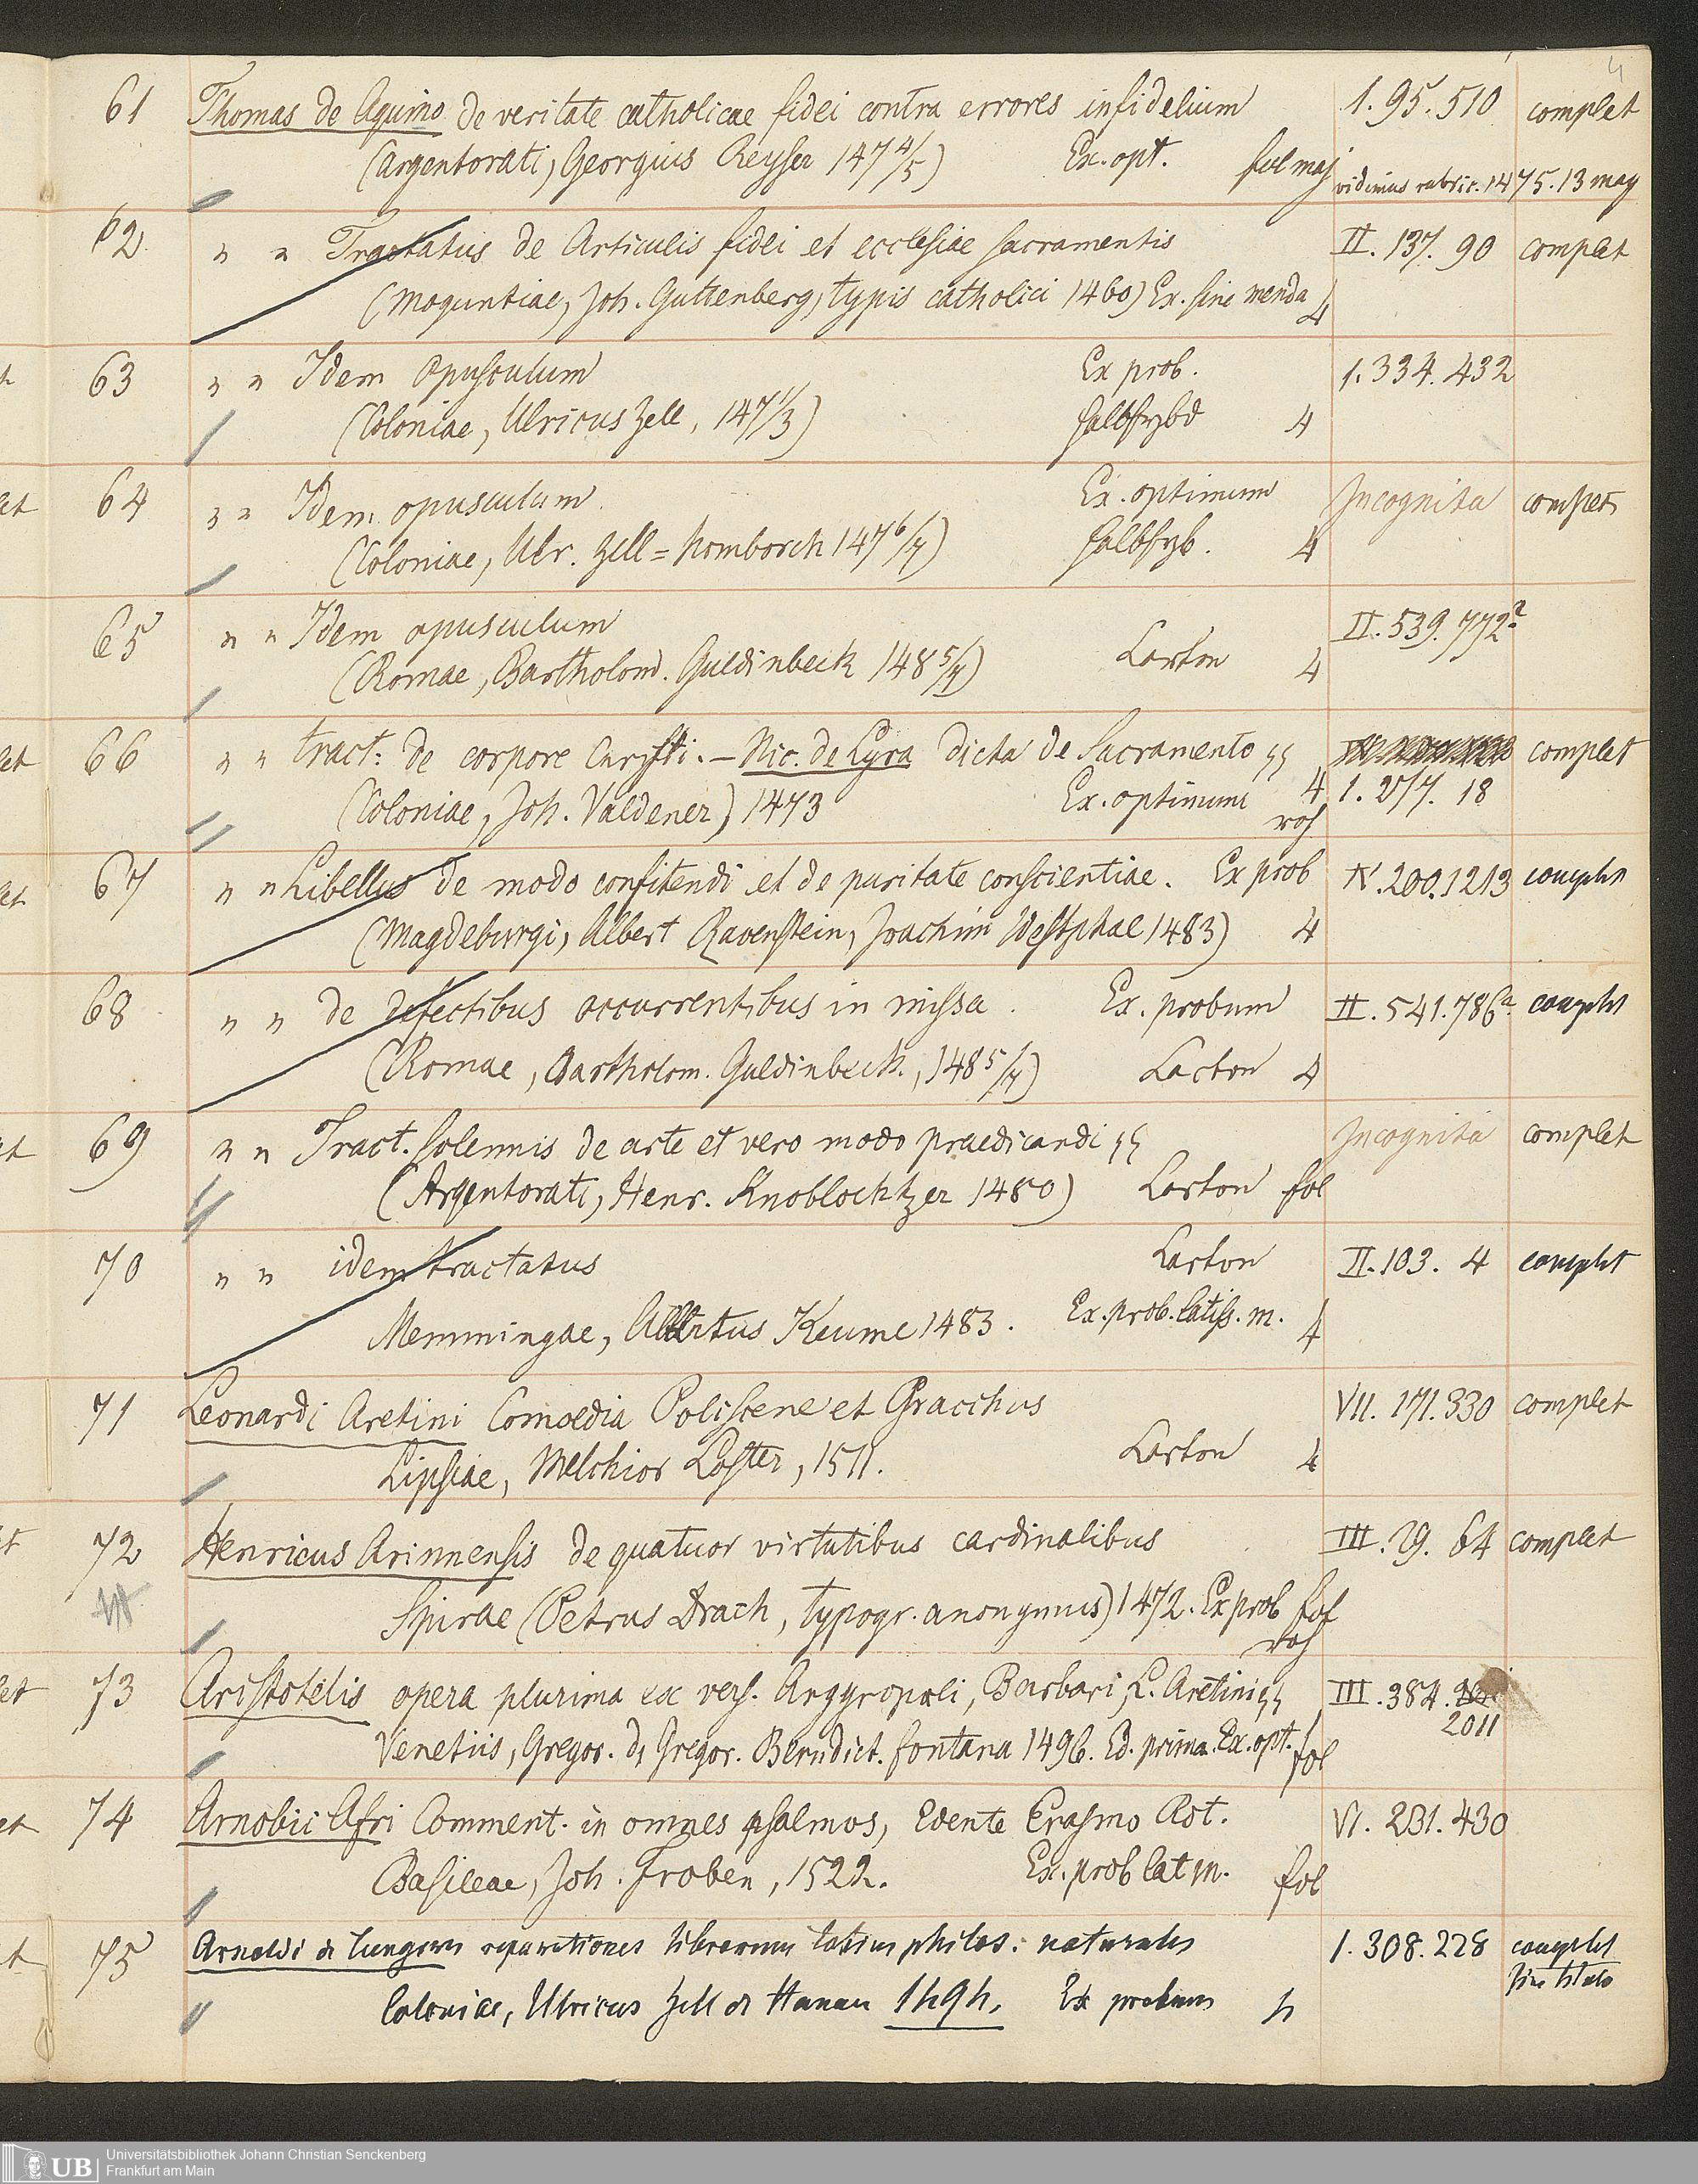 4
61 Thomas de Aquino de veritate catholicae fidei contra errores infidelium 1. 95. 510 complet
(Argentorati, Georgius Reyser 147 4/5) Ex. opt. fol maj vidimus rubric. 1475. 13 may
62 " " Tractatus de Articulis fidei et ecclesiae sacramentis II. 137. 90 complet
(Moguntiae, Joh. Guttenberg, typis catholici 1460) Ex. sine menda 4
63 " " Idem opusculum Ex prob. 1. 334. 432
(Coloniae, Ulricus Zell, 147 1/3) halbfrzbd 4
64 " " Idem opusculum Ex. optimum Incognita complet
(Coloniae, Ulr. Zell = Homborch 147 6/7) halbfrzb. 4
65 " " Idem opusculum II. 539. 772a
(Romae, Bartholom. Guldinbeck 148 5/7) Carton 4
66 " " tract: de corpore Christi. — Nic. de Lyra dicta de Sacramento complet
(Coloniae, Joh. Valdener) 1473 Ex. optimum 4 1. 257. 18
roh
67 " " Libellus de modo confitendi et de puritate conscientiae. Ex prob IV. 200. 1213 complet
(Magdeburgi, Albert Ravenstein, Joachim Westphal 1483) 4
68 " " de defectibus occurrentibus in missa. Ex. probum II. 541. 786a complet
(Romae, Bartholom. Guldinbeck., 148 5/7) Carton 4
69 " " Tract. solennis de arte et vero modo praedicandi Incognita complet
(Argentorati, Henr. Knoblochtzer 1480) Carton fol
70 " " idem tractatus Carton II. 103. 4 complet
Memmingae, Albertus Keume 1483. Ex. prob. latiss. m. 4
71 Leonardi Aretini Comoedia Poliscene et Gracchus VII. 171. 330 complet
Lipsiae, Melchior Lotter, 1511. Carton 4
72 Henricus Ariminensis de quatuor virtutibus cardinalibus III. 29. 64 complet
Spirae (Petrus Drach, typogr. anonymus) 1472. Ex prob fol
roh
73 Aristotelis opera plurima ex vers. Argyropoli, Barbari, L. Aretini III. 384.
2011
Venetiis, Gregor. d, Gregor. Benedict. fontana 1496. Ed. prima. Ex. opt. fol
74 Arnobii Afri Comment. in omnes psalmos, Edente Erasmo Rot. VI. 231. 430
Basileae, Joh. Froben, 1522. Ex. prob lat m. fol
75 Arnoldi de Tungern reparationes librorum totius philos: naturalis 1. 308. 228 complet
sine titulo
Coloniae, Ulricus Zell de Hanau 1494. Ex probum 4
UB Universitätsbibliothek Johann Christian Senckenberg
Frankfurt am Main